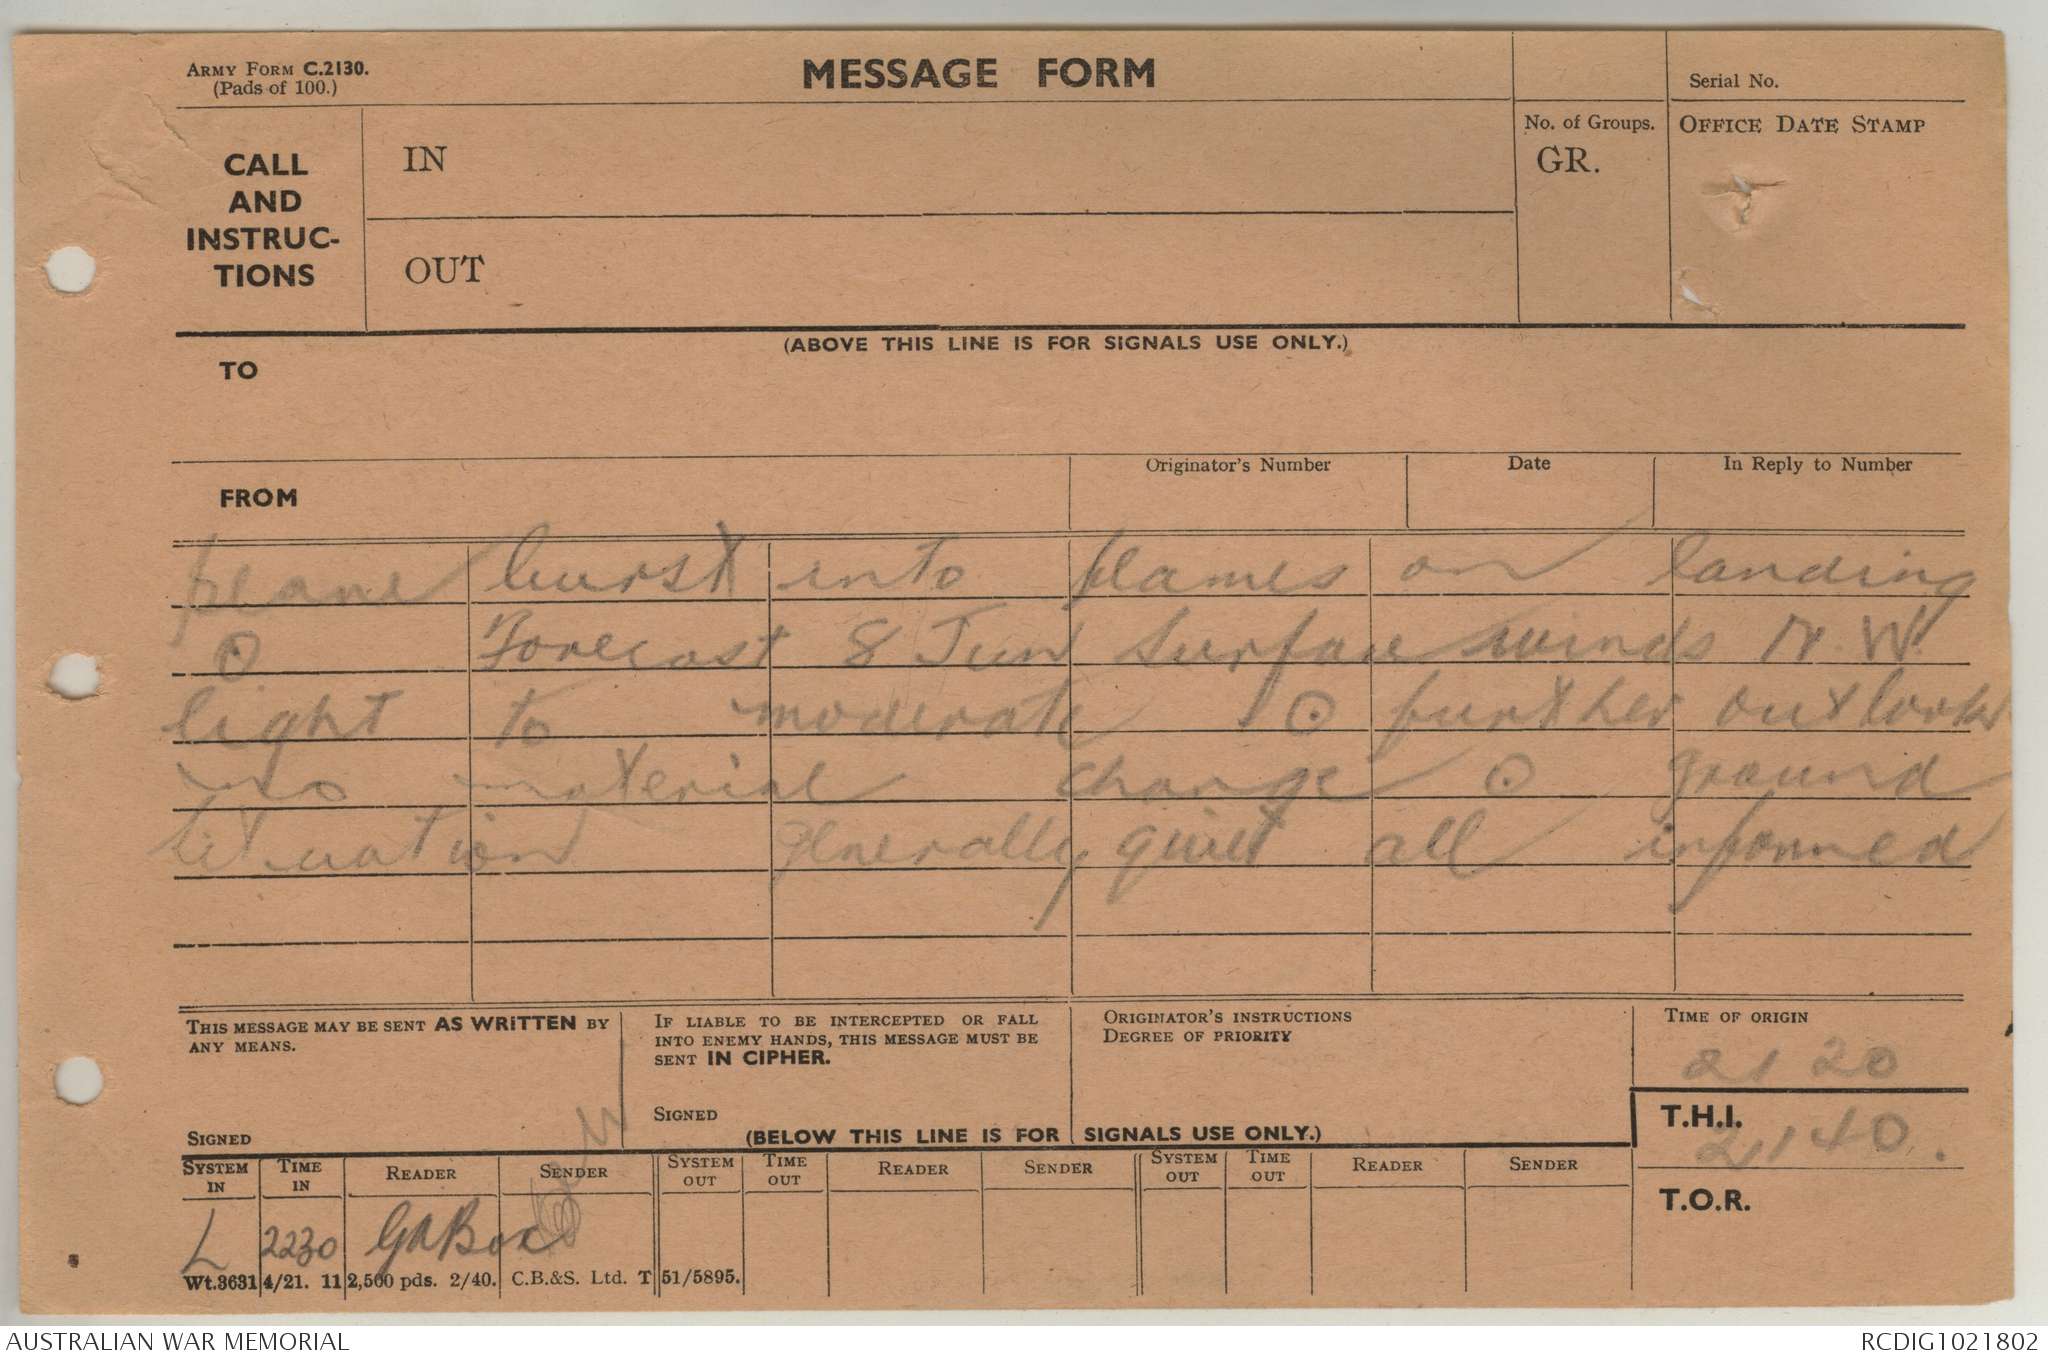 ARMY FORM C.2130.
(Pads of 100.)
MESSAGE FORM
Serial No.
CALL
AND
INSTRUC-
TIONS
IN
OUT
No. of Groups.
GR.
OFFICE DATE STAMP
(ABOVE THIS LINE IS FOR SIGNALS USE ONLY.)
TO
FROM
Originator's Number
Date
In Reply to Number
plane burst into flames on landing
⊙ Forecast 8 Jun Surface winds N.W.
light to moderate ⊙ further outlook
no material change ⊙ ground
situation generally quiet all informed
THIS MESSAGE MAY BE SENT AS WRITTEN BY
ANY MEANS.
SIGNED
IF LIABLE TO BE INTERCEPTED OR FALL
INTO ENEMY HANDS, THIS MESSAGE MUST BE
SENT IN CIPHER.
SIGNED
ORIGINATOR'S INSTRUCTIONS
DEGREE OF PRIORITY
TIME OF ORIGIN
2120
T.H.I.
2140.
T.O.R.
(BELOW THIS LINE IS FOR SIGNALS USE ONLY.)
SYSTEM IN TIME IN READER SENDER SYSTEM OUT TIME OUT READER SENDER SYSTEM OUT TIME OUT READER SENDER
L 2230
Wt.36314/21. 112,500 pds. 2/40. C.B.&S. Ltd. T 51/5895.
AUSTRALIAN WAR MEMORIAL
RCDIG1021802